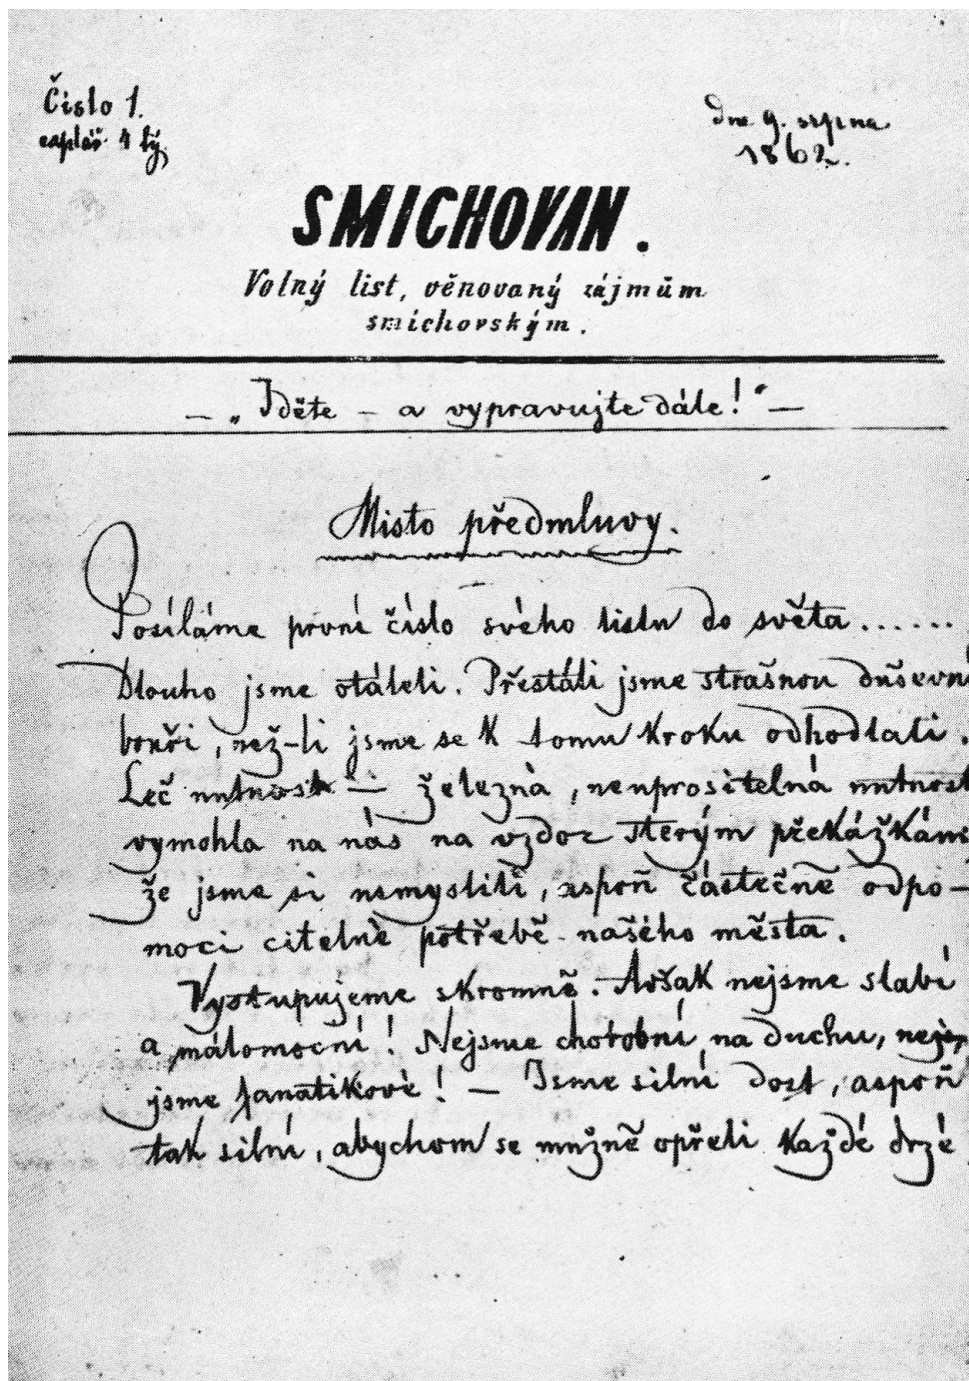 Číslo 1.
zaplať 4 ký.
dne 9. srpna
1862.
SMICHOVAN.
Volný list, věnovaný zájmům
smíchovským.
— „Iděte – a vypravujte dále!“ —
Místo předmluvy.
Posíláme první číslo svého listu do světa......
Dlouho jsme otáleli. Přestáli jsme strašnou duševní
bouři, než-li jsme se k tomu kroku odhodlali.
Leč nutnost — železná, neuprositelná nutnost
vymohla na nás na vzdor sterým překážkám
že jsme si usmyslili, aspoň částečně odpo-
moci citelné potřebě našeho města.
Vystupujeme skromně. Avšak nejsme slabí
a málomocní! Nejsme chorobní na duchu,
jsme fanatikové! — Jsme silní dost, aspoň
tak silní, abychom se mužně opřeli každé drzé